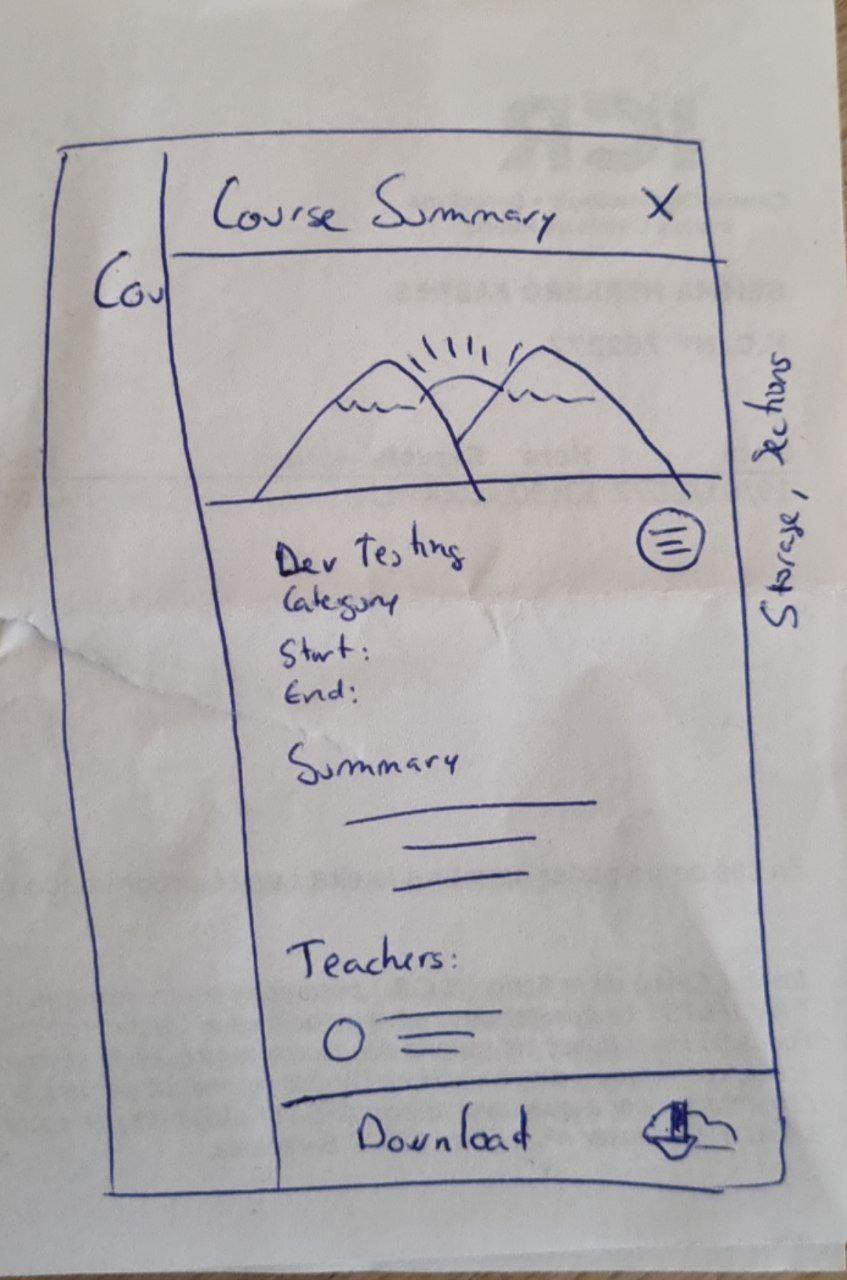 Course Summary X
Cou
Dev Testing
Category
Start:
End:
Summary
Teachers:
Download
Storage, Sections